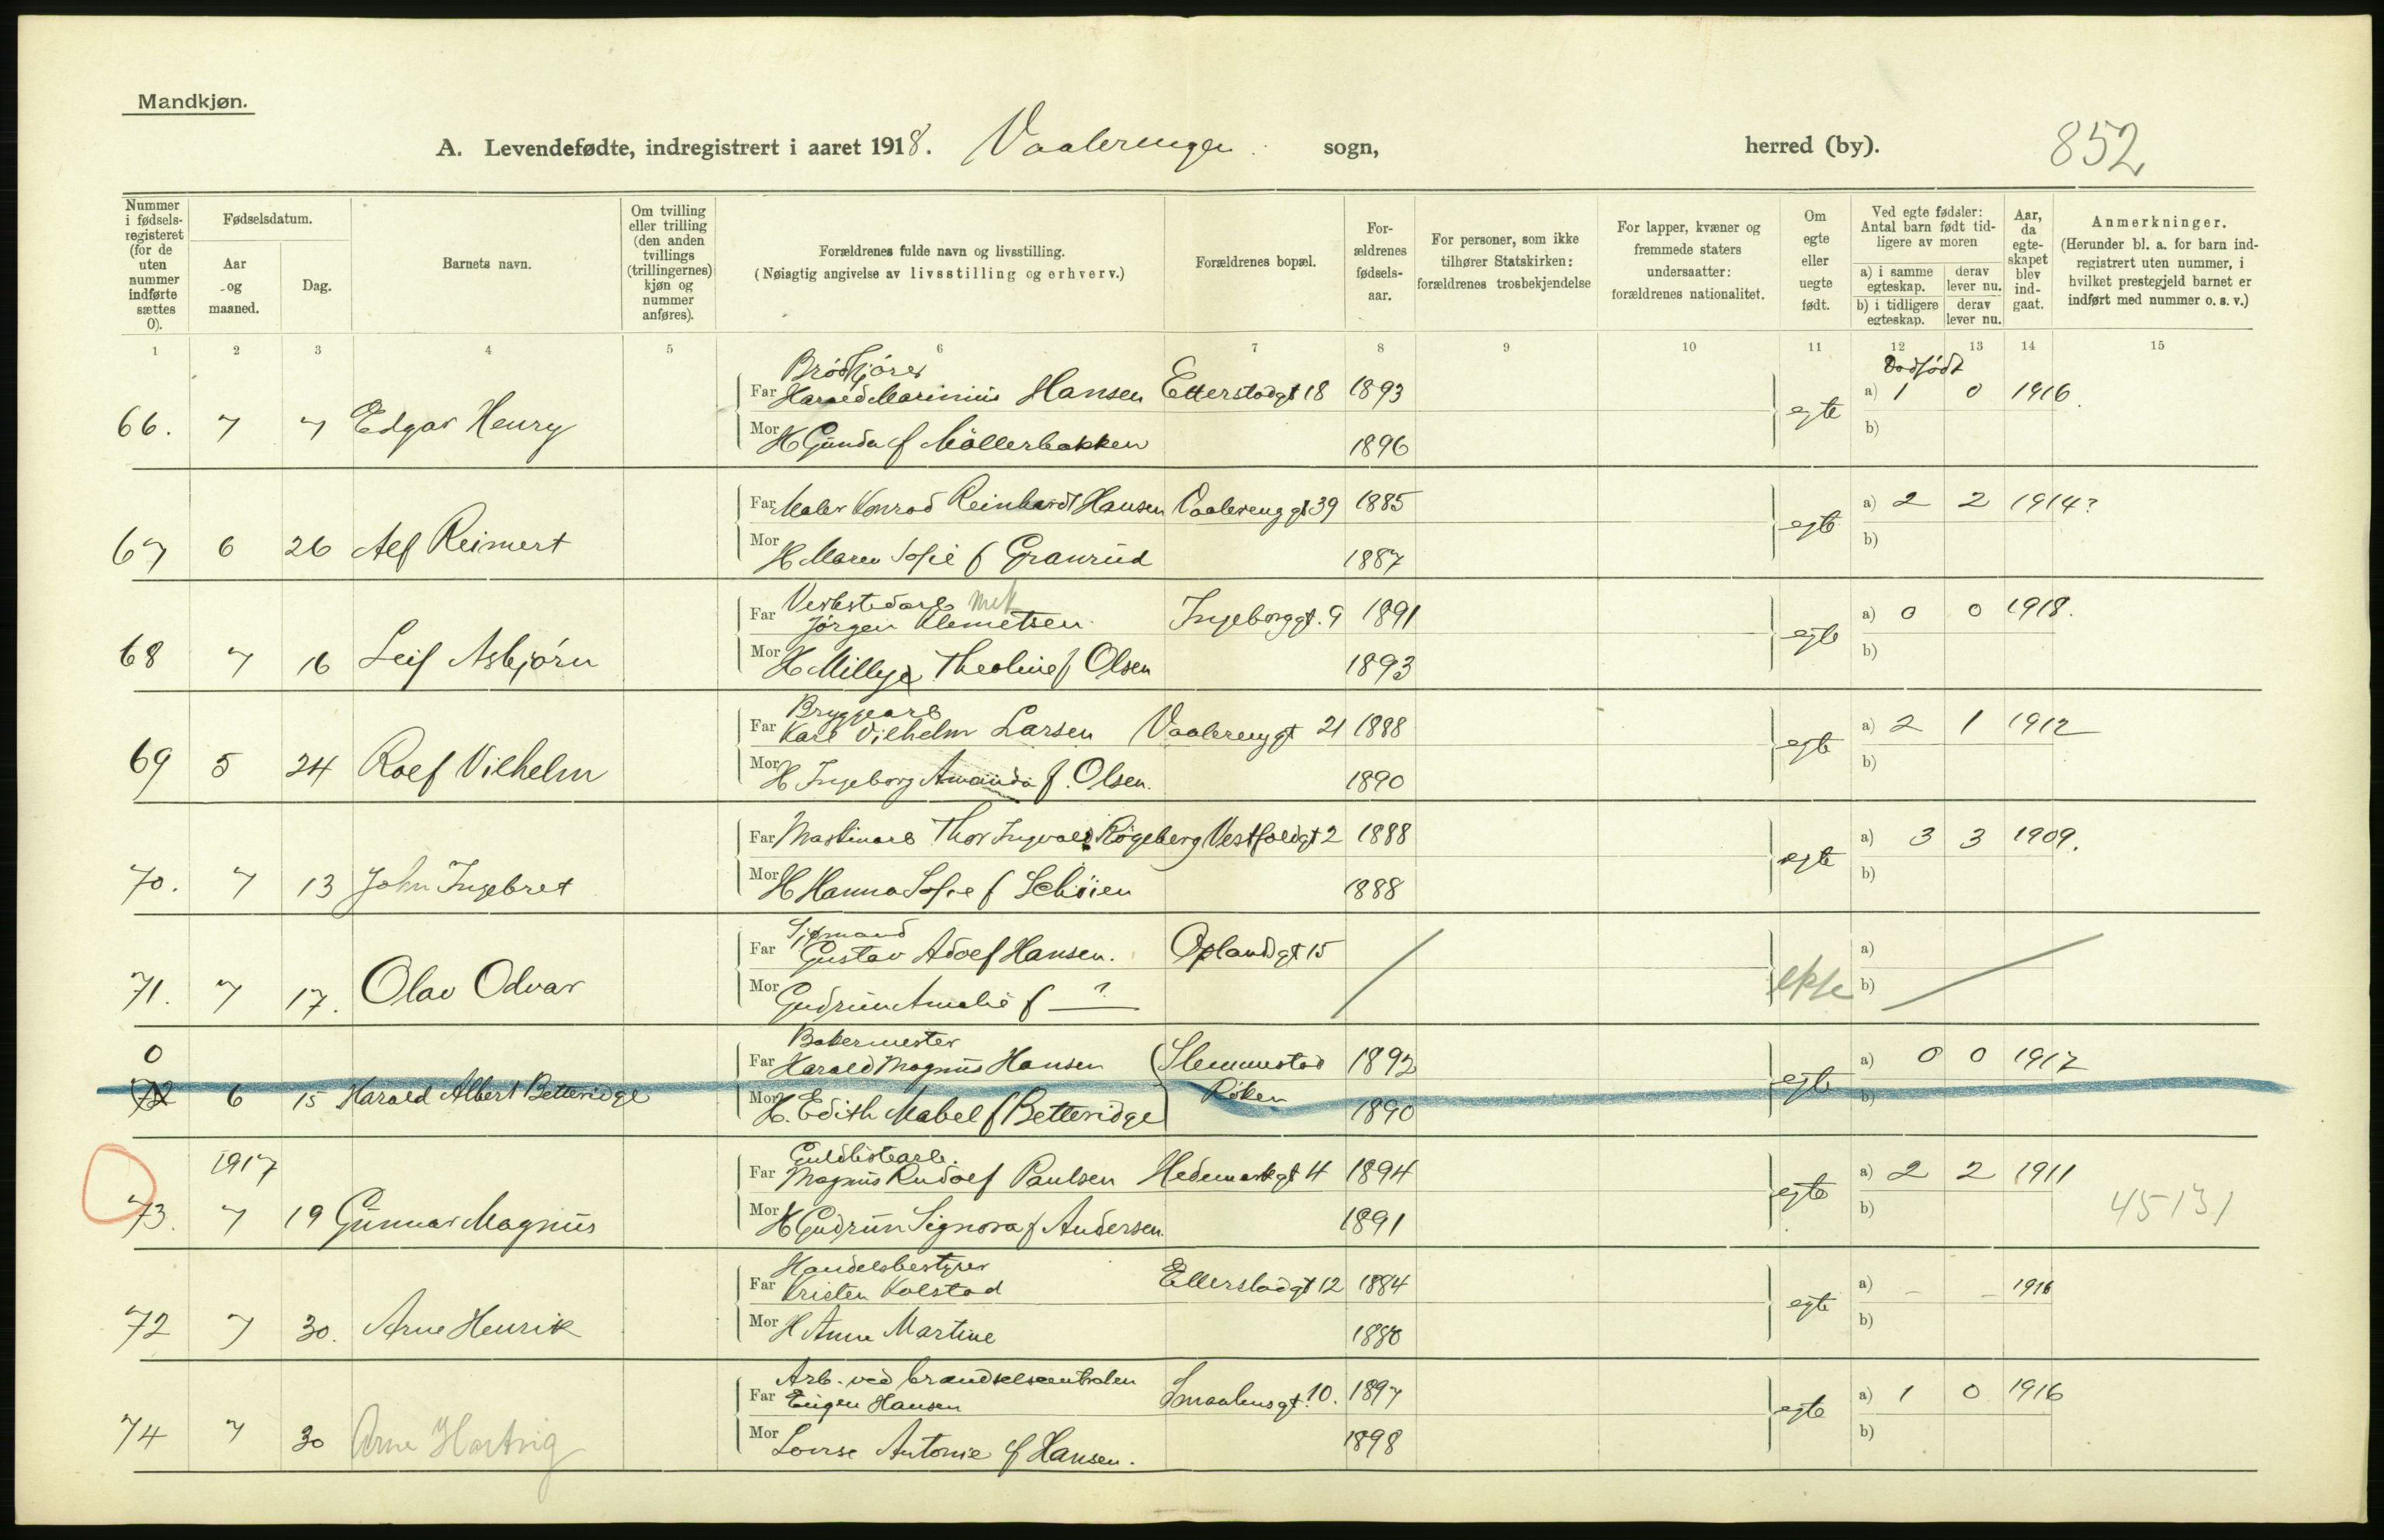 Mandkjøn.
A. Levendefødte, indregistrert i aaret 1918. Vaalerengen sogn, herred (by). 852
Nummer i fødsels-registeret (for de uten nummer indførte sættes 0).
Fødselsdatum.
Aar og maaned.
Dag.
Barnets navn.
Om tvilling eller trilling (den anden tvillings (trillingernes) kjøn og nummer anføres).
Forældrenes fulde navn og livsstilling.
(Nøiagtig angivelse av livsstilling og erhverv.)
Forældrenes bopæl.
For-ældrenes fødsels-aar.
For personer, som ikke tilhører Statskirken: forældrenes trosbekjendelse
For lapper, kvæner og fremmede staters undersaatter: forældrenes nationalitet.
Om egte eller uegte født.
Ved egte fødsler: Antal barn født tid-ligere av moren
a) i samme egteskap. derav lever nu.
b) i tidligere egteskap. derav lever nu.
Aar, da egte-skapet blev ind-gaat.
Anmerkninger.
(Herunder bl. a. for barn ind-registrert uten nummer, i hvilket prestegjeld barnet er indført med nummer o. s. v.)
1 2 3 4 5 6 7 8 9 10 11 12 13 14 15
Brødkjører Dødfødt
Far Harald Marinius Hansen Etterstadgt 18 1893 a) 1 0 1916.
66. 7 7 Edgar Henry egte b)
Mor H Gunda f Möllerbakken 1896
Far Maler Konrad Reinhardt Hansen Vaalerenggt 39 1885 a) 2 2 1914?
67 6 26 Alf Reimert egte b)
Mor H Maren Sofie f Granrud 1887
Verkstedarb mek
Far Jørgen Klemetsen Ingeborggt. 9 1891 a) 0 0 1918.
68 7 16 Leif Asbjørn egte b)
Mor H Milly Theoline f Olsen 1893
Bryggearb
Far Karl Vilhelm Larsen Vaalerenggt 21 1888 a) 2 1 1912
69 5 24 Rolf Vilhelm egte b)
Mor H Ingeborg Amanda f. Olsen. 1890
Far Maskinarb Thor Ingvald Rögeberg Vestfoldgt 2 1888 a) 3 3 1909.
70. 7 13 John Ingebret egte b)
Mor H Hanna Sofie f Schöien 1888
Sjømand
Far Gustav Adolf Hansen. Oplandgt 15 a)
71. 7 17. Olav Odvar ekte b)
Mor Gudrun Amalie f ?
0 Bakermester
Far Harald Magnus Hansen Slemmestad 1892 a) 0 0 1917
72 6 15 Harald Albert Betteridge Røken egte b)
Mor H. Edith Mabel f Betteridge 1890
1917 Guldlistearb.
Far Magnus Rudolf Paulsen Hedemarkgt 4 1894 a) 2 2 1911
73. 7 19 Gunnar Magnus egte b) 45131
Mor H Gudrun Signora f Andersen. 1891
Handelsbestyrer
Far Kristen Kolstad Etterstadgt 12 1884 a) - - 1916
72 7 30. Arne Henrik egte b)
Mor H Anna Martine 1880
Arb. ved brændselscentralen
Far Eugen Hansen Smaalensgt. 10. 1897 a) 1 0 1916
74 7 30 Arne Hartvig egte b)
Mor Lovise Antonie f Hansen. 1898